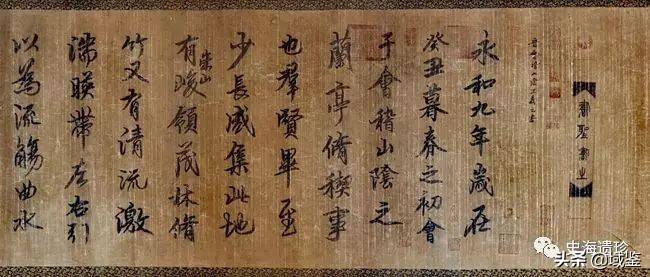 永和九年歲在
癸丑暮春之初會
于會稽山陰之
蘭亭脩禊事
也羣賢畢至
少長咸集此地
有崇山峻領茂林脩
竹又有清流激
湍暎帶左右引
以為流觴曲水
史海遗珍
头条 @域鉴